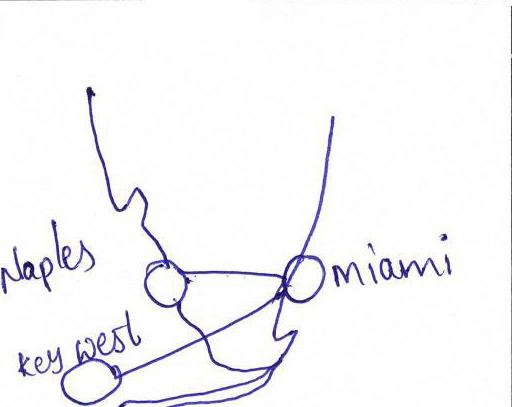 Naples
miami
key west